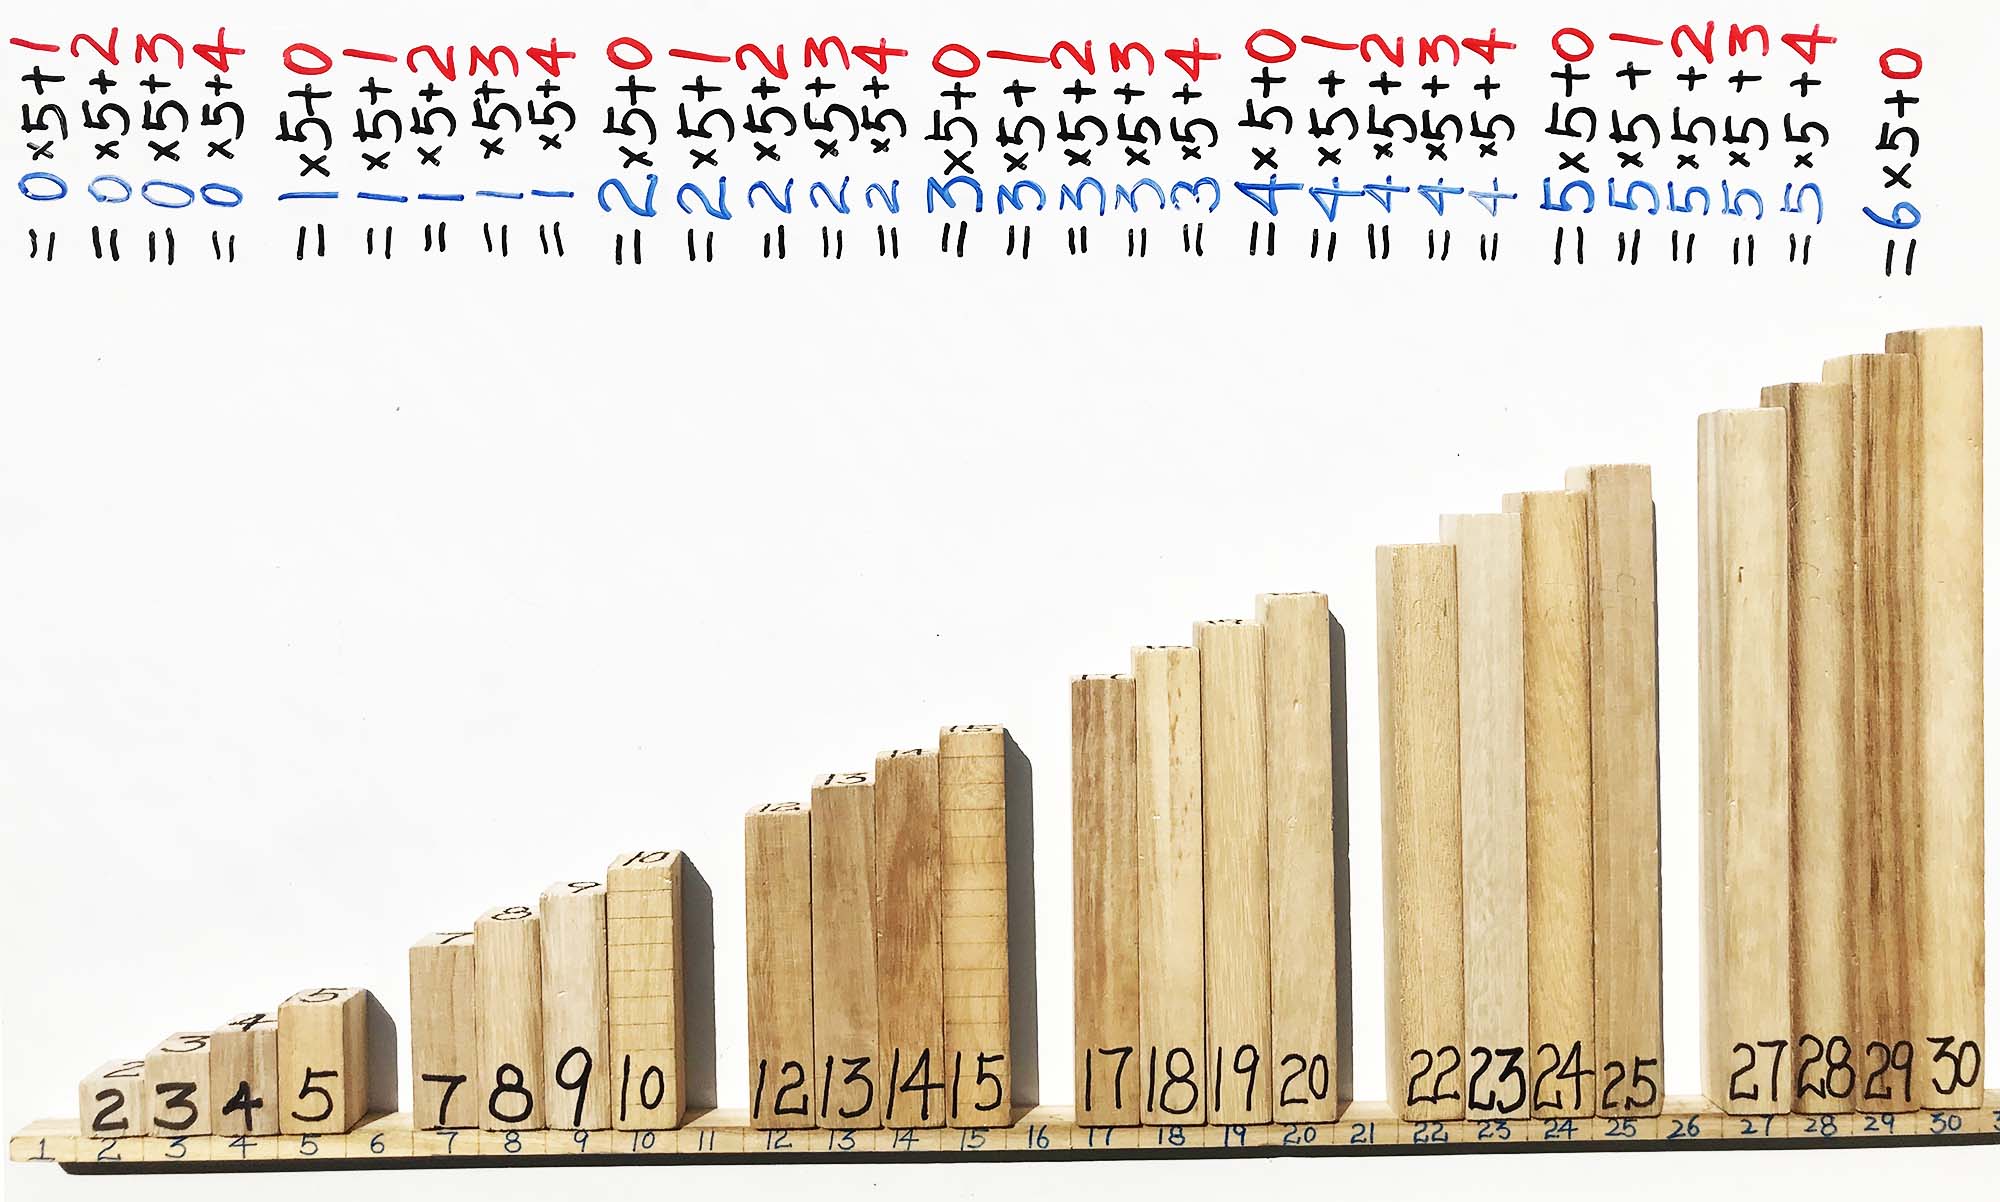 =0×5+1
=0×5+2
=0×5+3
=0×5+4
=1×5+0
=1×5+1
=1×5+2
=1×5+3
=1×5+4
=2×5+0
=2×5+1
=2×5+2
=2×5+3
=2×5+4
=3×5+0
=3×5+1
=3×5+2
=3×5+3
=3×5+4
=4×5+0
=4×5+1
=4×5+2
=4×5+3
=4×5+4
=5×5+0
=5×5+1
=5×5+2
=5×5+3
=5×5+4
=6×5+0
2 3 4 5 7 8 9 10 12 13 14 15
2 3 4 5 7 8 9 10 12 13 14 15 17 18 19 20 22 23 24 25 27 28 29 30
1 2 3 4 5 6 7 8 9 10 11 12 13 14 15 16 17 18 19 20 21 22 23 24 25 26 27 28 29 30